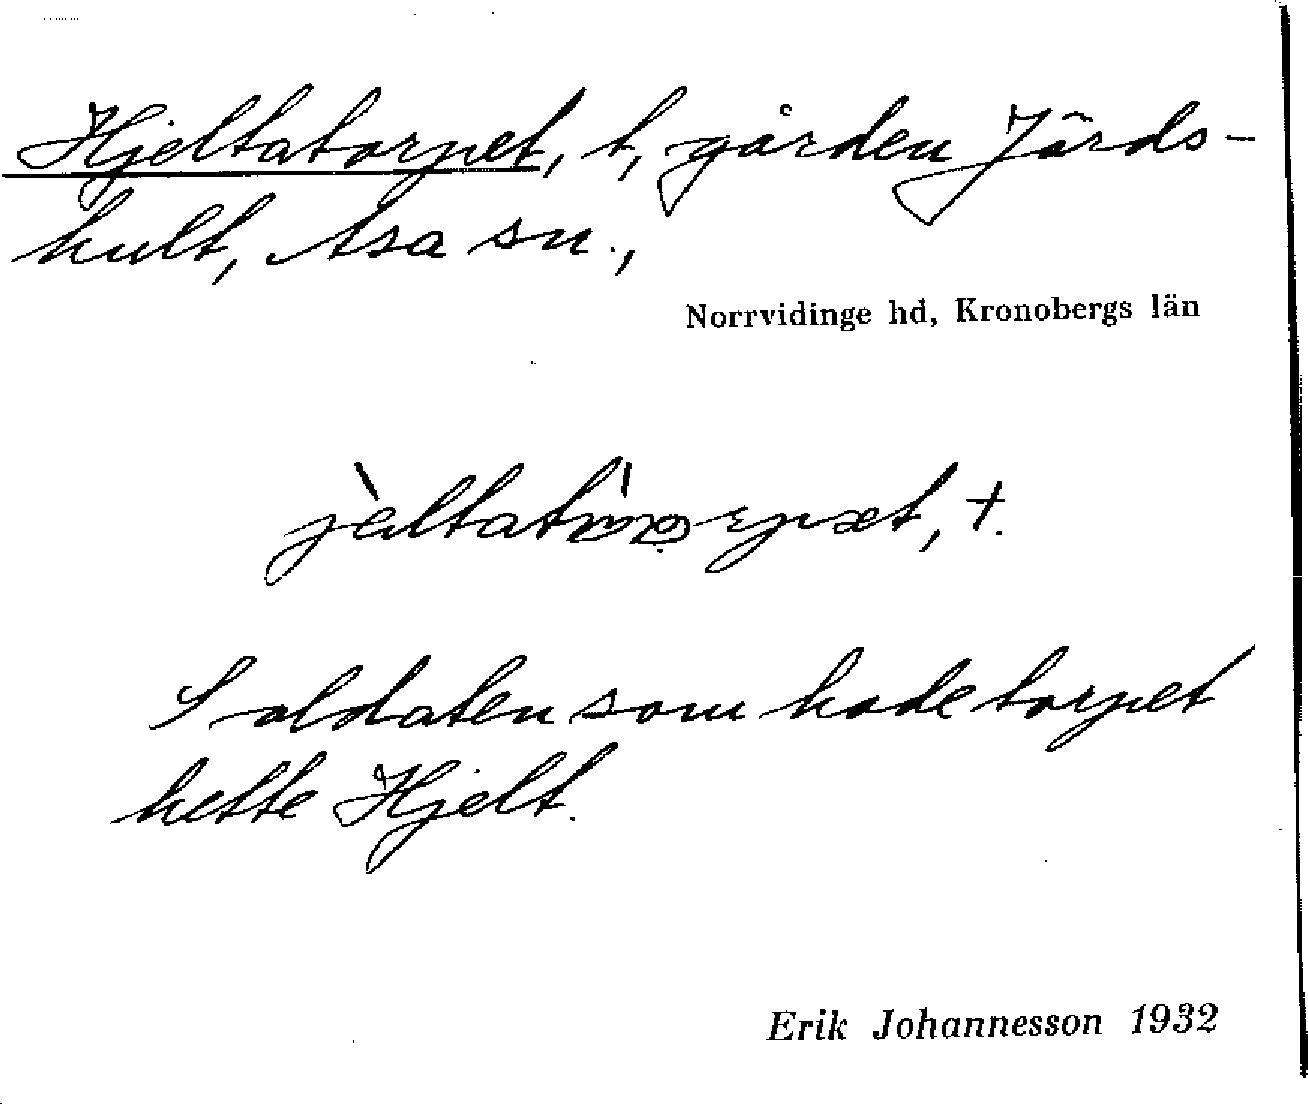 Hjeltatorpet, t, gården Järds-
hult, Asa sn.,
Norrvidinge hd, Kronobergs län
†.
Soldaten som hade torpet
hette Hjelt.
Erik Johannesson 1932